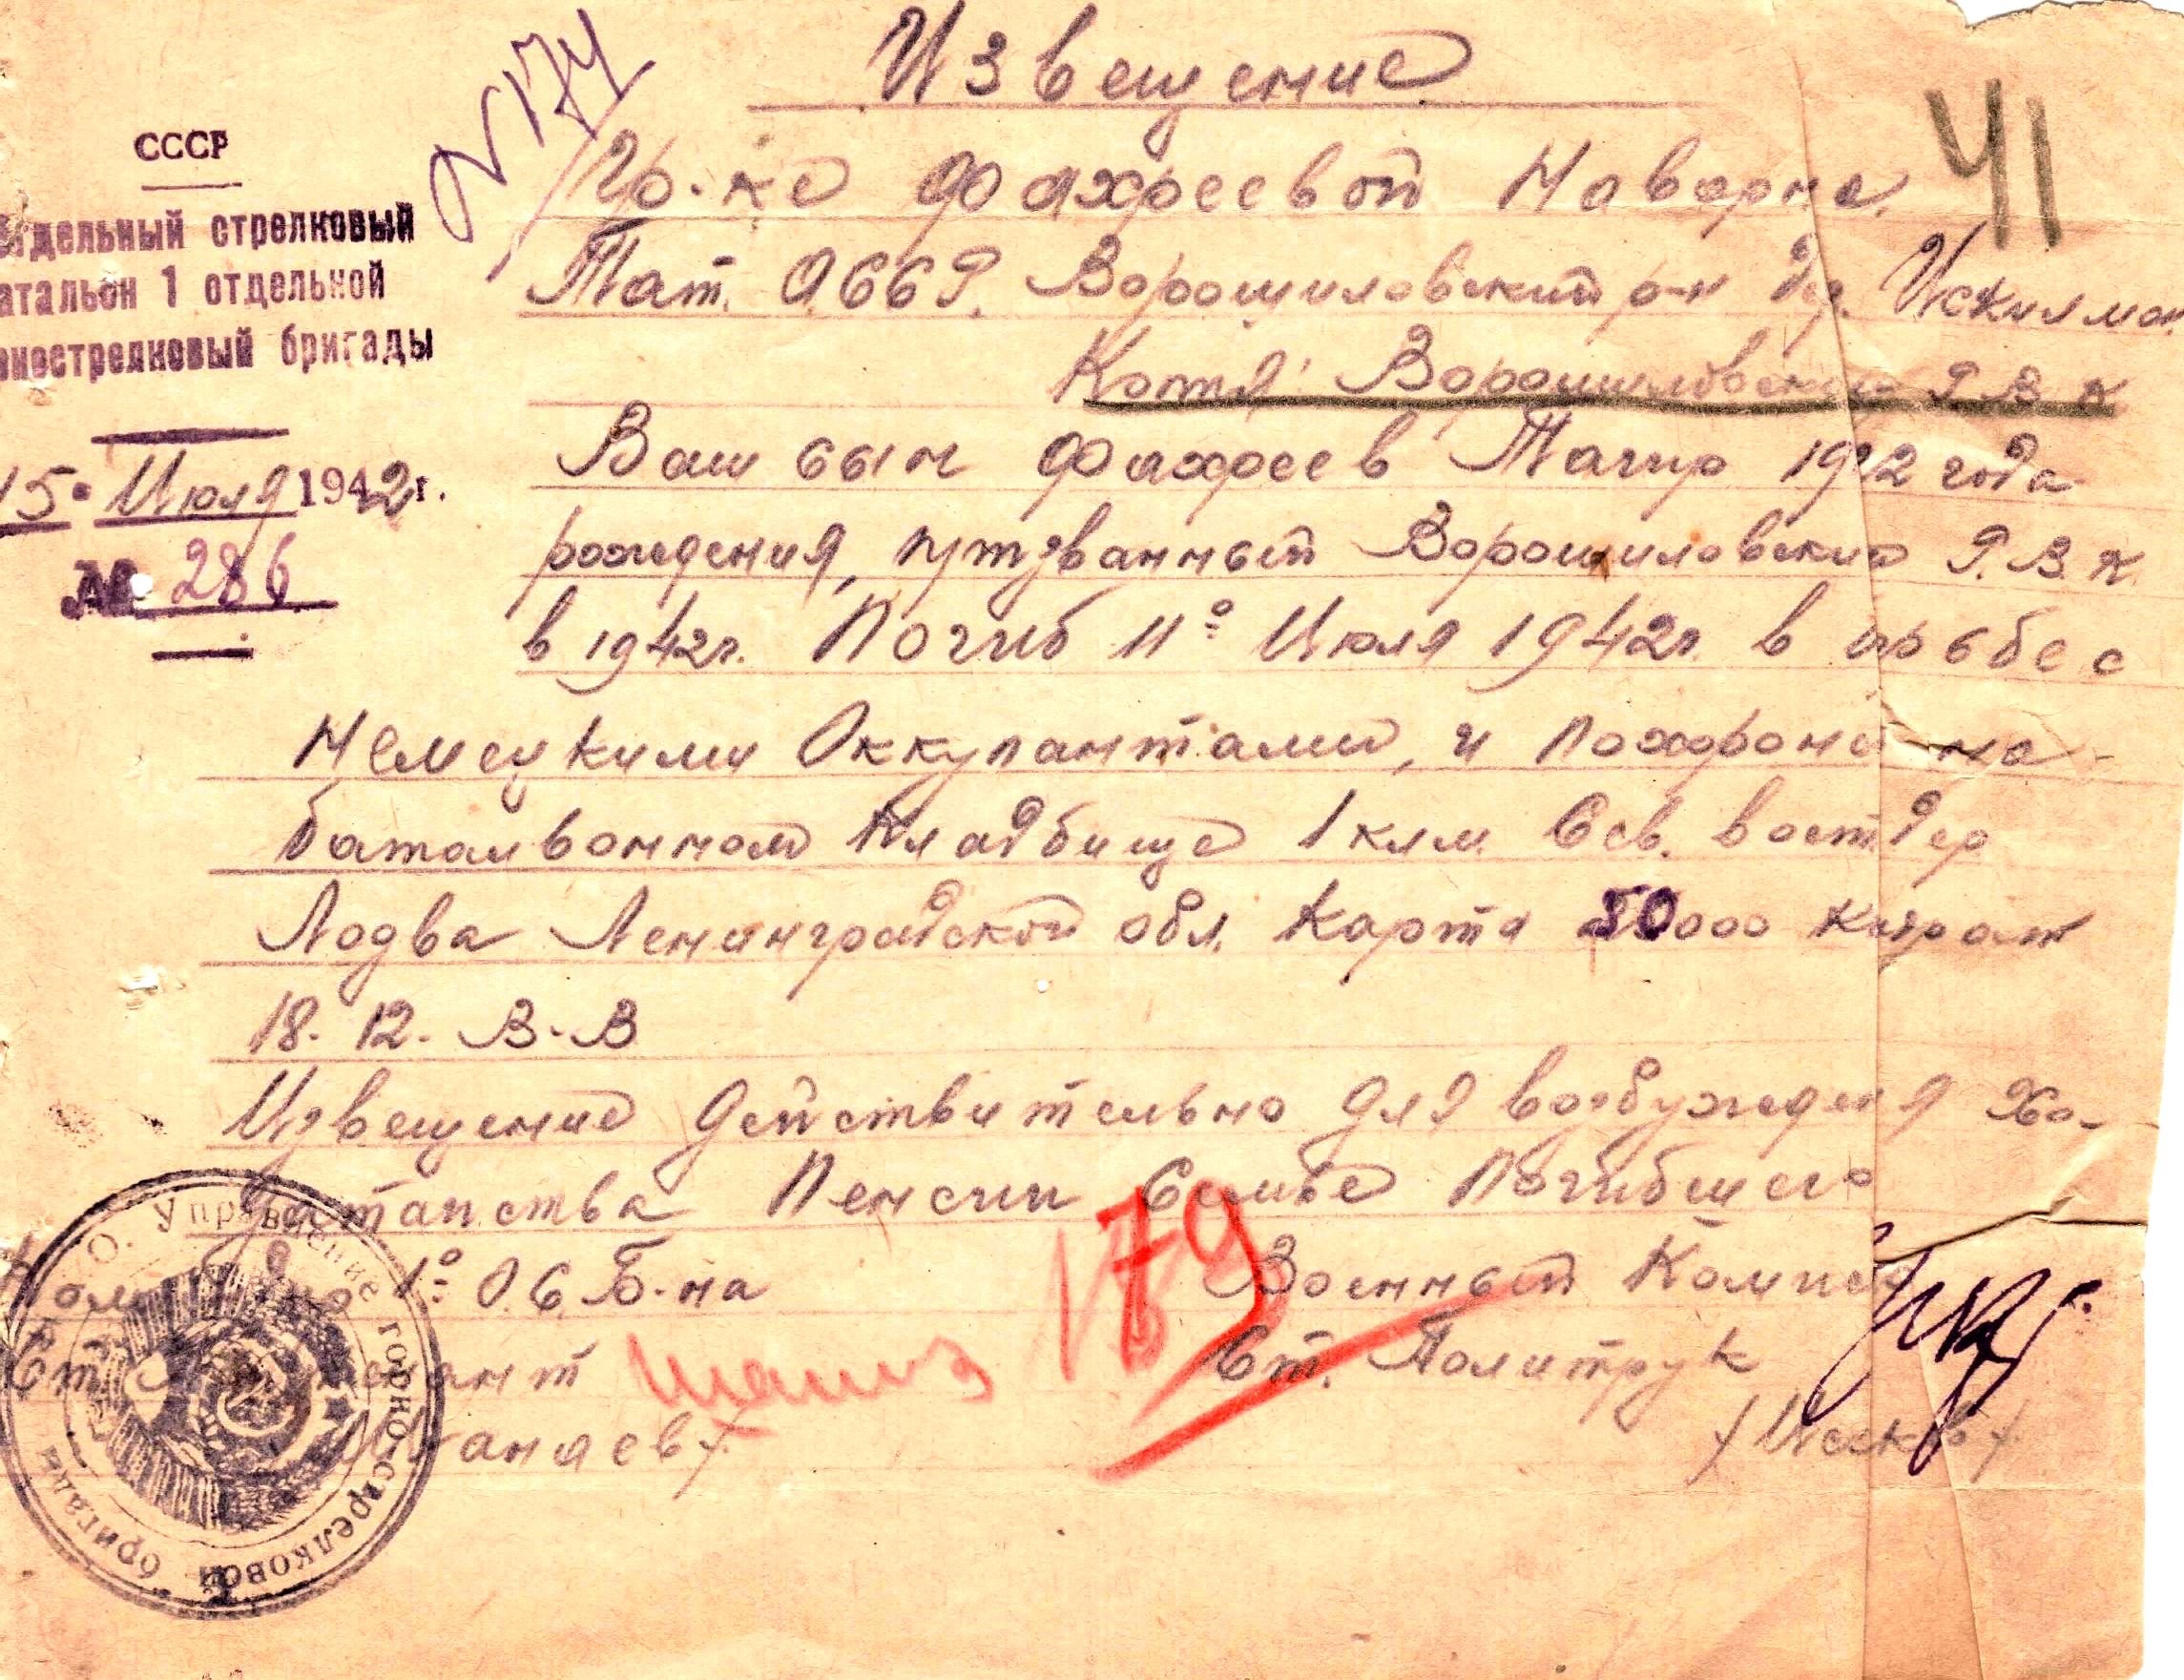 Извещение
N 174
41
СССР
Отдельный стрелковый
батальон 1 отдельной
горнострелковый бригады
15 Июля 1942 г.
№ 286
Гр-ке Фахреевой Наварне
Тат. АССР. Ворошиловский р-н дер.
Копия Ворошиловский Р.В.К
Ваш сын Фахреев Тагир 1922 года
рождения, призванный Ворошиловский Р.В.К.
в 1942г. Погиб 11º Июля 1942г. в борьбе с
Немецкими Оккупантами, и похоронен на
батальонном кладбище 1 клм. Сев. вост дер
Лодва Ленинградской обл. Карта 50000 Кадрат
18. 12. В-В
Извещение действительно для возбуждения Хо-
датайства Пенсии Семье Погибшего
1º О.С.Б-на
Военный Комиссар
Ст. Лейтенант
Ст. Политрук
179
Управление горно-стрелковой бригады